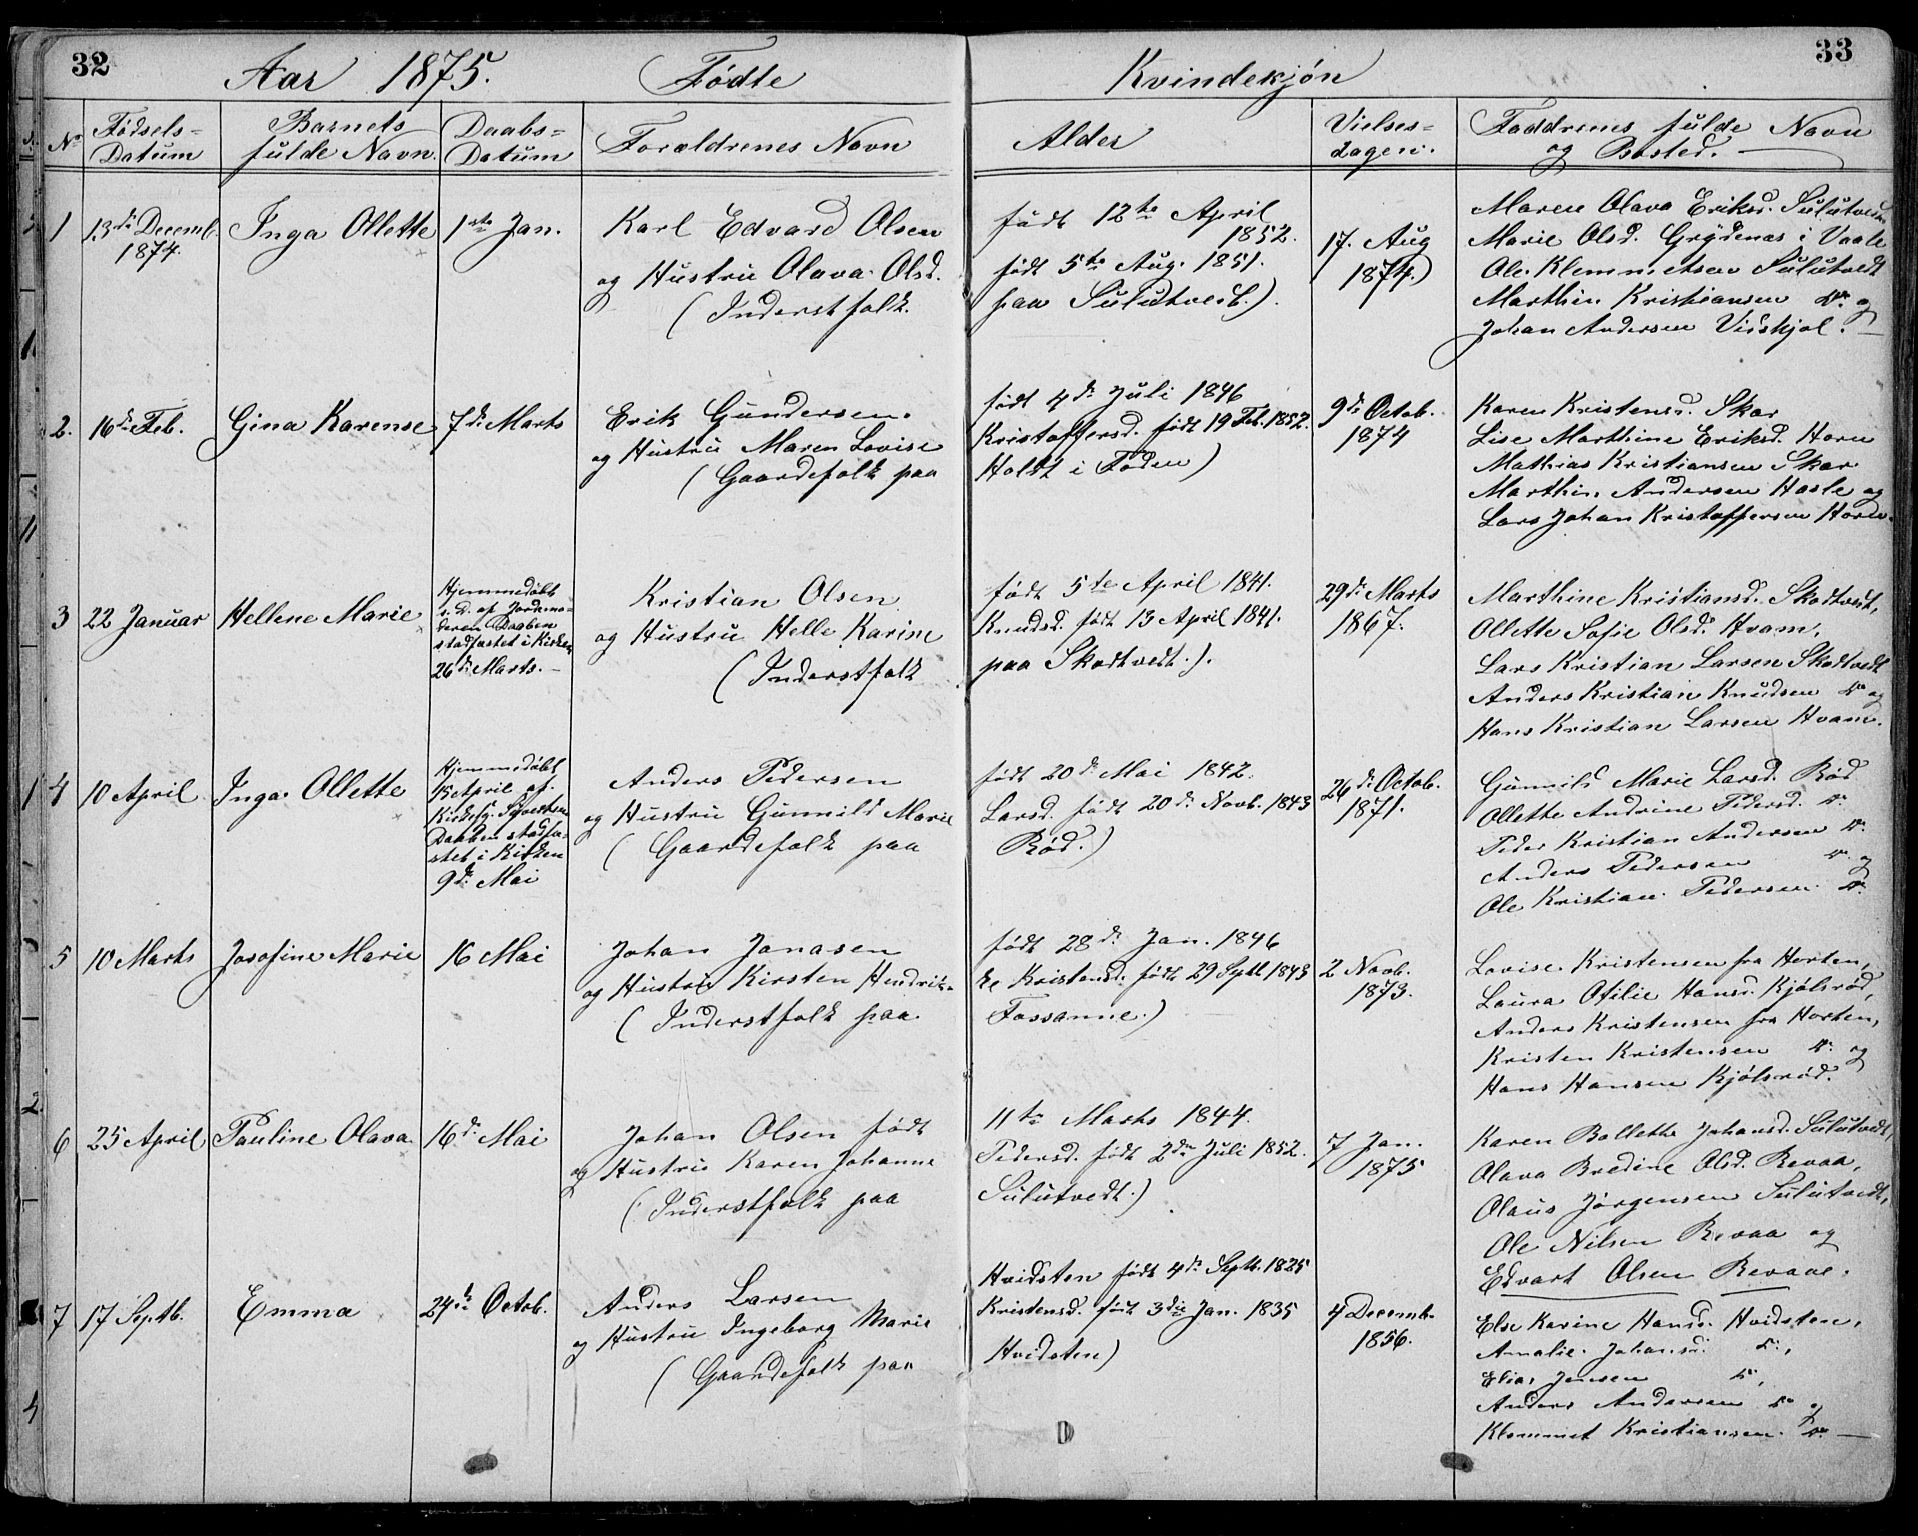 32
33
Aar 1875. Fødte Kvindekjøn
No
Fødsels=
Datum
Barnets
fulde Navn.
Daabs=
Datum
Forældrenes Navn
Alder
Vielses=
dagen.
Faddrenes fulde Navn
og Bosted.
1
13de Decemb.
1874.
Inga Ollette
1ste Jan.
Karl Edvard Olsen
og Hustru Olava Olsd.
(Inderstfolk.
født 12te April
1852.
født 5te Aug. 1851.
paa Sulutvedt.).
17. Aug
1874.
Maren Olava Eriksd. Sulutvedt
Marie Olsd. Grydenas i Vaale
Ole Klemmetsen Sulutvedt
Marthin Kristiansen do. og
Johan Andersen Viiskjol.
2.
16de Feb.
Gina Karense
7de Marts
Erik Gundersen.
og Hustru Maren Lovise
(Gaardefolk paa
født 4de Juli 1846
Kristoffersd. født 19 Feb. 1852.
Holdt i Foden)
9de Octob.
1874
Karen Kristensd. Skar
Lise Marthine Eriksd. Horn
Mathias Kristiansen Skar
Marthin Andersen Hasle og
Lars Johan Kristoffersen Horn.
3
22 Januar
Hellene Marie
Hjemmedøbt
s. D. af Jordemo-
deren Daaben
stadfæstet i Kirken
26de Marts.
Kristian Olsen
og Hustru Helle Karine
(Inderstfolk
født 5te April 1841.
Knudsd. født 13 April 1841.
paa Skodtvedt.).
29de Marts
1867.
Marthine Kristiansd. Skodtvedt,
Ollette Sofie Olsd. Hvam,
Lars Kristian Larsen Skodtvedt
Anders Kristian Knudsen do og
Hans Kristian Larsen Hvam.
4
10 April
Inga Ollette
Hjemmedøbt
15 April af
Kirkesg. Syvertsen
Daaben stadfæ-
stet i Kirken
9de Mai
Anders Pedersen
og Hustru Gunnild Marie
(Gaardefolk paa
født 20de Mai 1842.
Larsd. født 20de Novb. 1843
Rød.)
26de Octob.
1871.
Gunnild Marie Larsd. Rød
Ollette Andrine Pedersd. do.
Peder Kristian Andersen do.
Anders Pedersen do. og
Ole Kristian Pedersen do.
5
10 Marts
Josofine Marie
16 Mai
Johan Jonasen
og Hustru Kirsten Hendrik-
(Inderstfolk paa
født 28de Jan. 1846
ke Kristensd. født 29 Septb 1843
Fossanne.)
2 Novb.
1873.
Lovise Kristensen fra Horten,
Laura Otilie Hansd. Kjølsrød,
Anders Kristensen fra Horten,
Kristen Kristensen do. og
Hans Hansen Kjølsrød.
6
25 April
Pauline Olava
16de Mai
Johan Olsen født
og Hustru Karen Johanne
(Inderstfolk paa
11te Marts 1844.
Pedersd. født 2den Juli 1852.
Sulutvedt.)
7 Jan.
1875
Karen Bollette Johansd. Sulutvedt,
Olava Bredine Olsd. Revaa,
Olaus Jørgensen Sulutvedt,
Ole Nilsen Revaa og
Edvart Olsen Revaae.
7
17 Septb.
Emma
24de Octob.
Anders Larsen
og Hustru Ingeborg Marie
(Gaardefolk paa
Hvidsten født 4de Septb. 1825
Kristensd. født 3die Jan. 1835
Hvidsten)
4 Decemb.
1856.
Else Karine Hansd. Hvidsten,
Amalie Johansd. do.,
Elias Jensen do,
Anders Andersen do og
Klemmet Kristiansen. do.